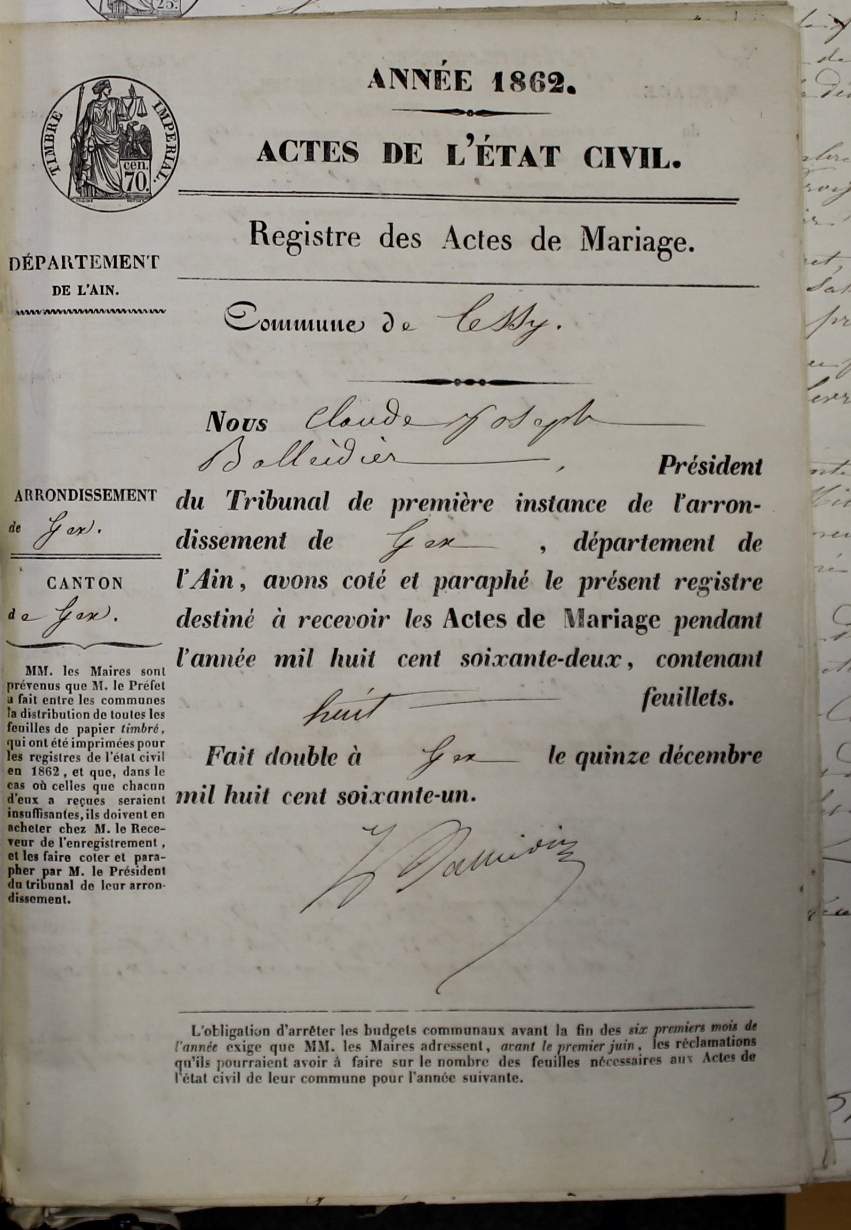 ANNÉE 1862.
ACTES DE L'ÉTAT CIVIL.
TIMBRE IMPERIAL.
cen.
70.
Registre des Actes de Mariage.
DÉPARTEMENT
DE L'AIN.
Commune de Cessy.
Nous Claude Joseph
Balleidier, Président
du Tribunal de première instance de l'arron-
dissement de Gex, département de
l'Ain, avons coté et paraphé le présent registre
destiné à recevoir les Actes de Mariage pendant
l'année mil huit cent soixante-deux, contenant
huit feuillets.
Fait double à Gex le quinze décembre
mil huit cent soixante-un.
ARRONDISSEMENT
de Gex.
CANTON
de Gex.
MM. les Maires sont
prévenus que M. le Préfet
a fait entre les communes
la distribution de toutes les
feuilles de papier timbré,
qui ont été imprimées pour
les registres de l'état civil
en 1862, et que, dans le
cas où celles que chacun
d'eux a reçues seraient
insuffisantes, ils doivent en
acheter chez M. le Rece-
veur de l'enregistrement,
et les faire coter et para-
pher par M. le Président
du tribunal de leur arron-
dissement.
L'obligation d'arrêter les budgets communaux avant la fin des six premiers mois de
l'année exige que MM. les Maires adressent, avant le premier juin, les réclamations
qu'ils pourraient avoir à faire sur le nombre des feuilles nécessaires aux Actes de
l'état civil de leur commune pour l'année suivante.